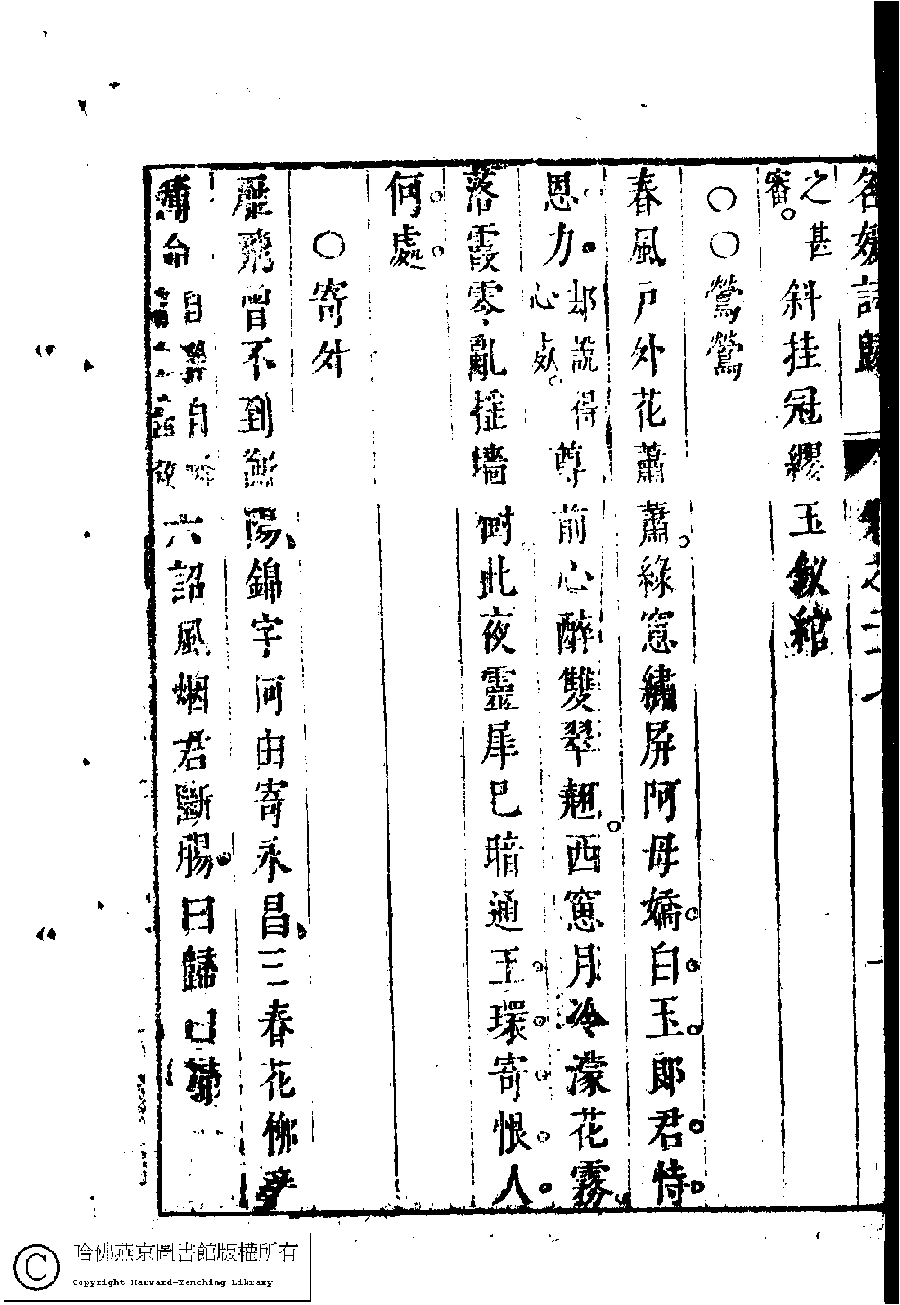 名媛詩歸 卷之二十八 一
之甚審。斜挂冠纓玉釵綰
○○鶯鶯
春風戶外花蕭蕭。綠窓繡屏阿母嬌。白玉郎君恃
恩力。却說得心處。尊前心醉雙翠翹。西窓月冷濛花霧
落霞零亂摇墻樹此夜靈犀巳暗通玉環寄恨人
何處。
○寄外
鴈飛曾不到衡陽、錦字何由寄永昌、三春花柳妾
薄命自自六詔風烟君斷腸。曰歸曰歸
哈佛燕京圖書館版權所有
Copyright Harvard-Yenching Library